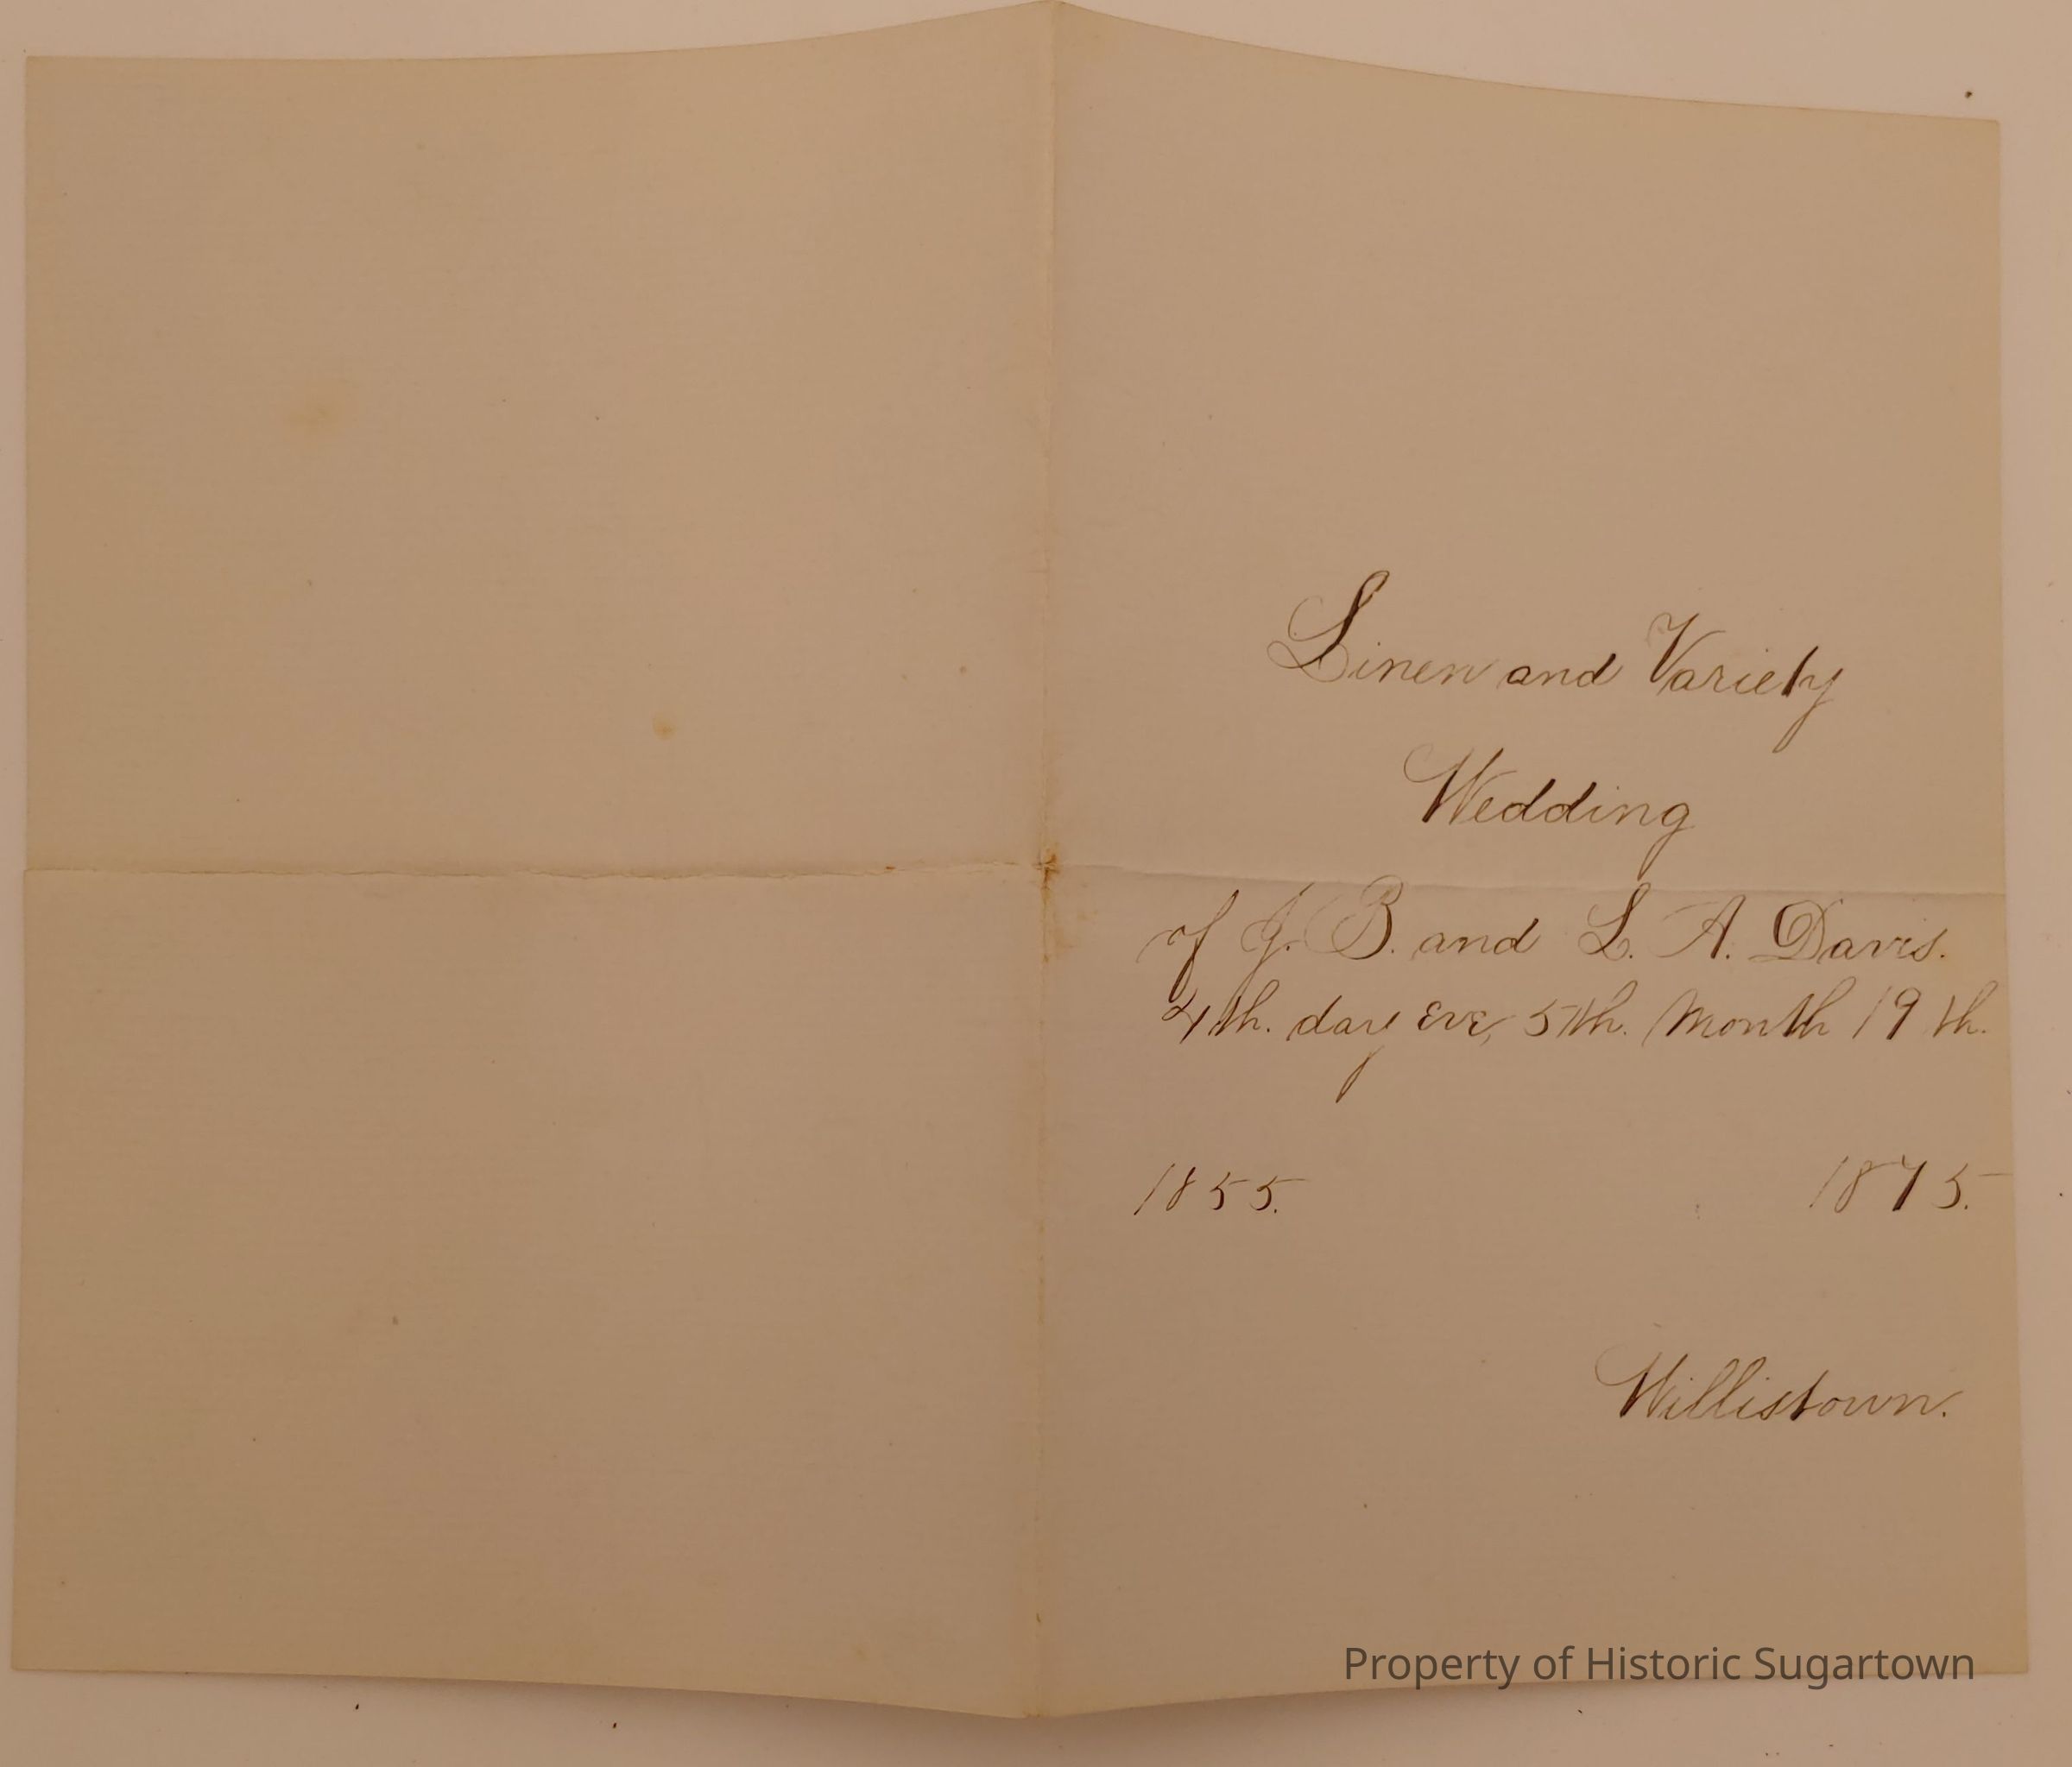 Linen and Variety
Wedding
of J. B. and L. A. Davis.
4th. day Eve, 5th. Month 19th.
1855. 1875.
Willistown.
Property of Historic Sugartown